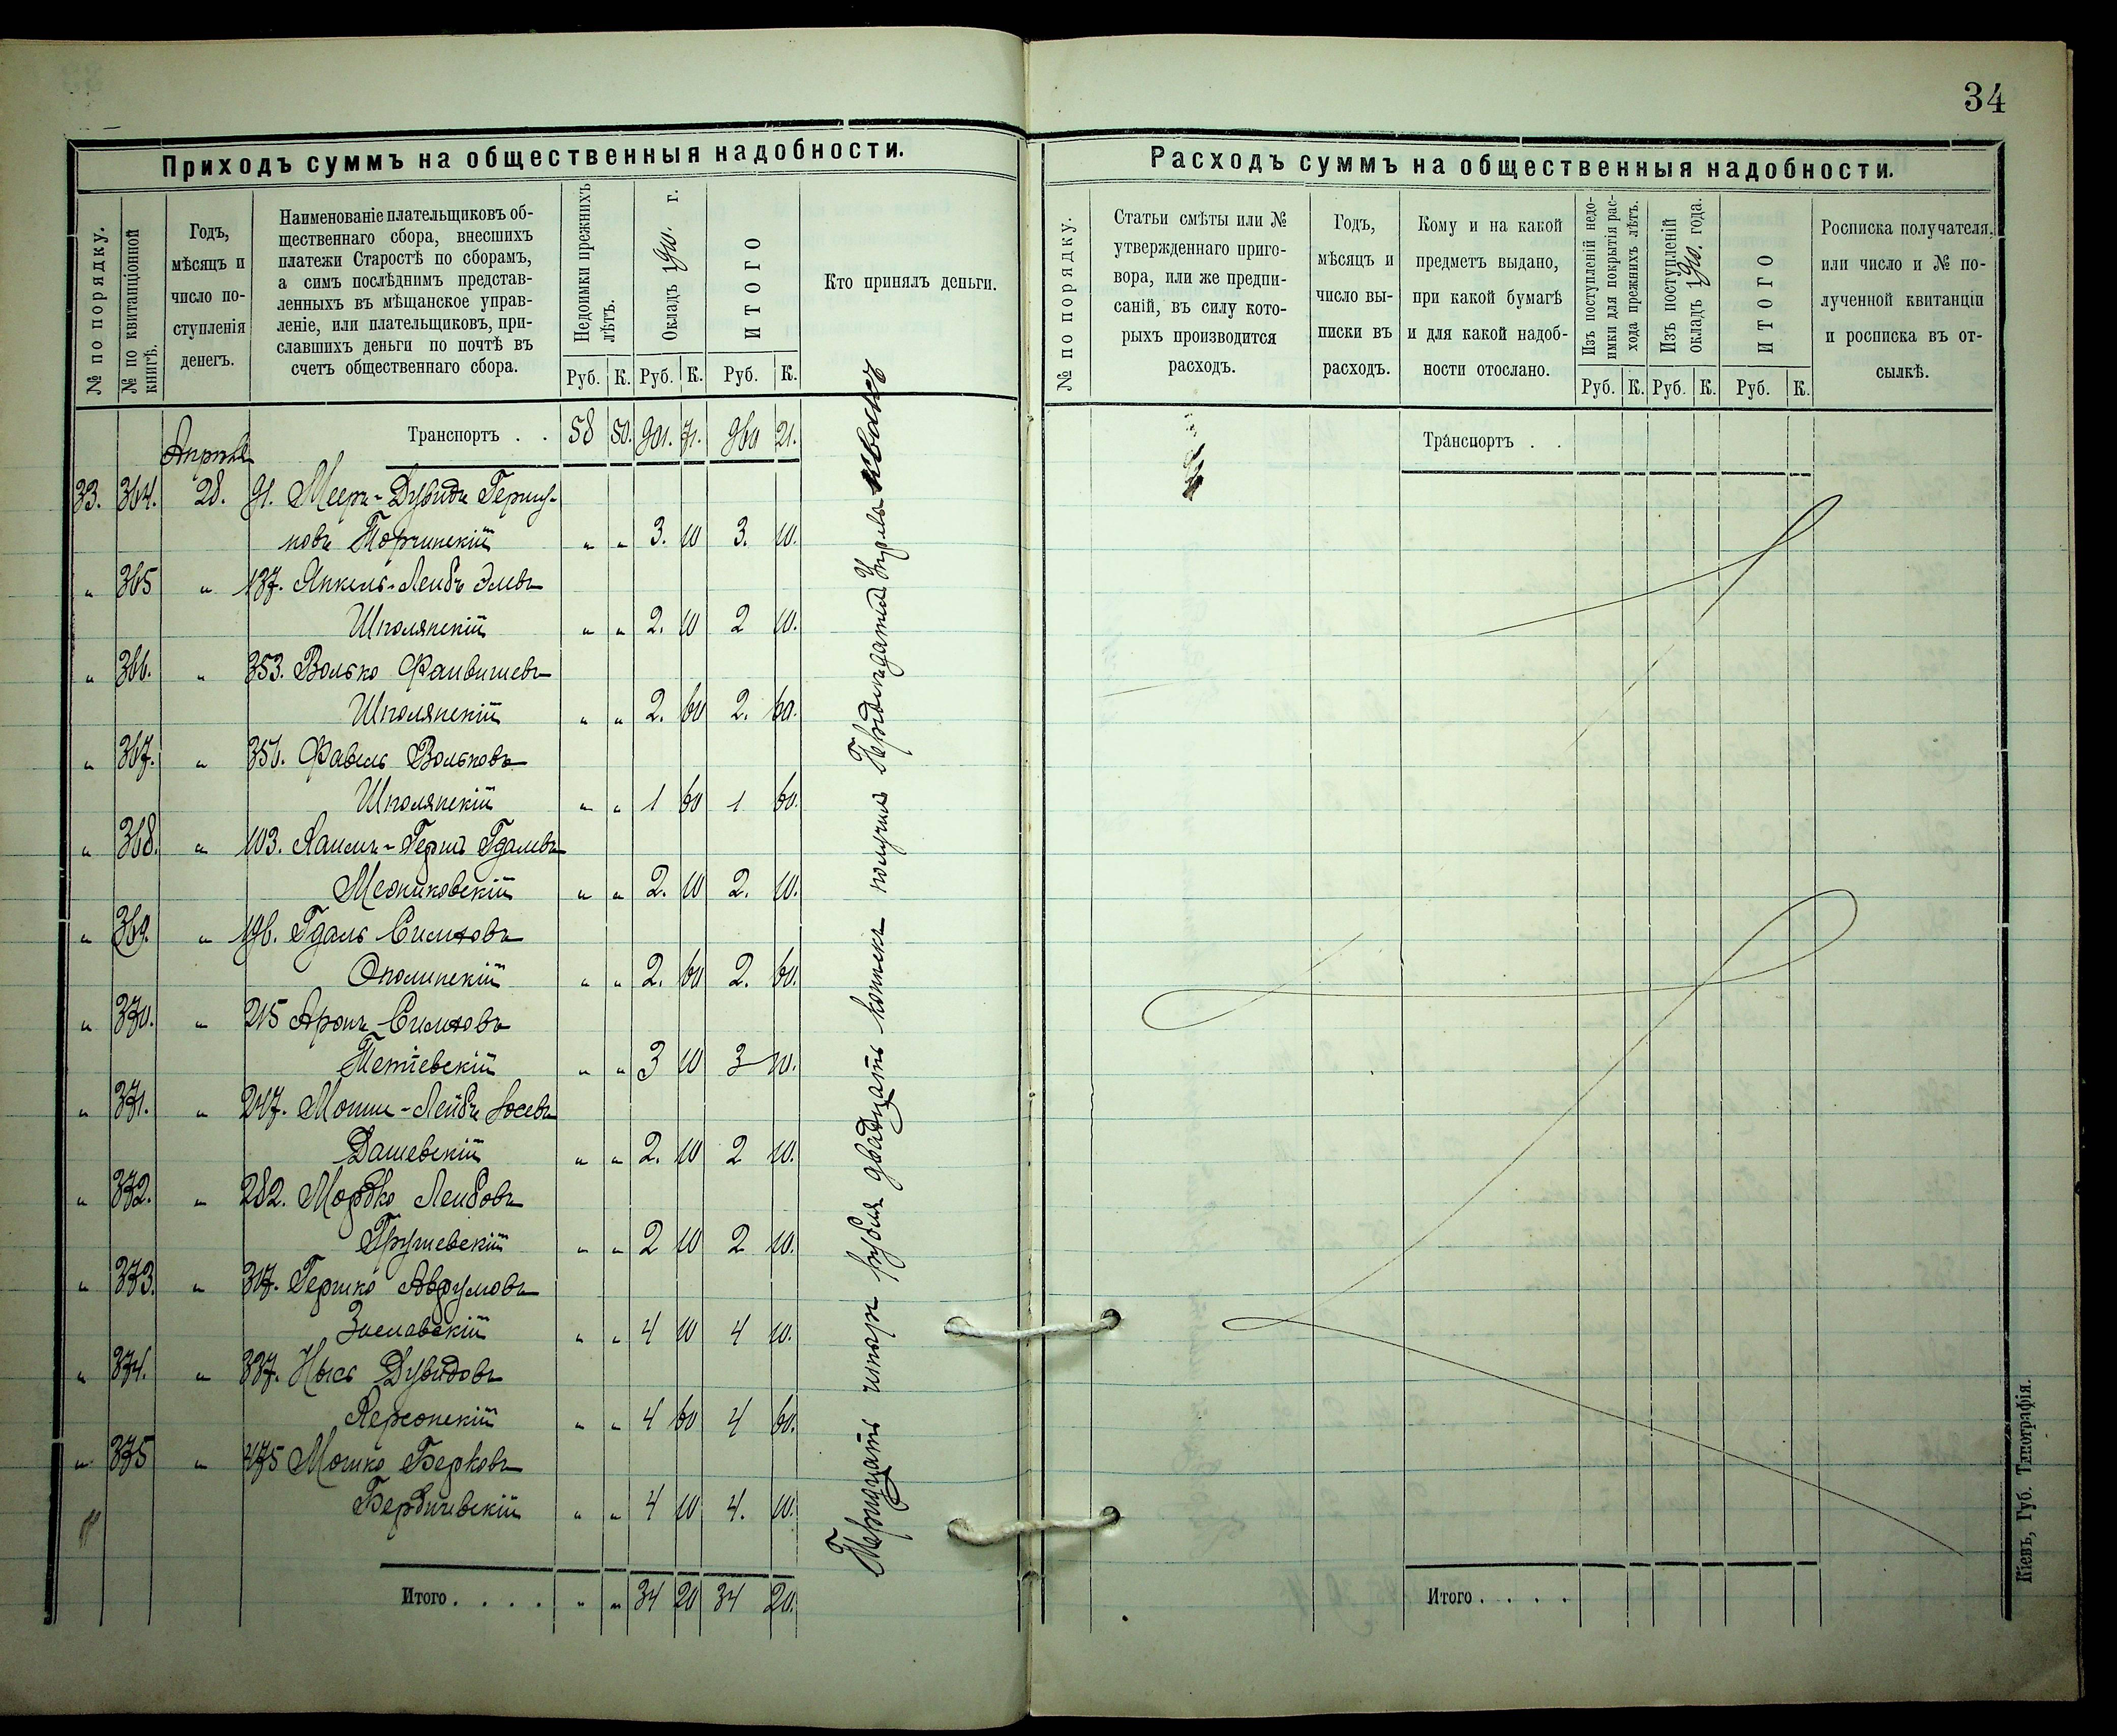 34
Приходъ суммъ на общественныя надобности.
№ по порядку.
№ по квитанціонной книгѣ.
Годъ,
мѣсяцъ и
число по-
ступленія
денегъ.
Наименованіе плательщиковъ об-
щественнаго сбора, внесшихъ
платежи Старостѣ по сборамъ,
а симъ послѣднимъ представ-
ленныхъ въ мѣщанское управ-
леніе, или плательщиковъ, при-
славшихъ деньги по почтѣ въ
счетъ общественнаго сбора.
Недоимки прежнихъ
лѣтъ.
Окладъ 1910. г.
ИТОГО
Кто принялъ деньги.
Руб. К. Руб. К. Руб. К.
Транспортъ . . 58 50. 901. 71. 960 21.
Апрѣля
33. 364. 28. 91. Мееръ-Дувидъ Гершу-
новъ Торчинскій " " 3. 10 3. 10.
" 365 " 137. Янкель-Лейбъ Элевъ
Шполянскій " " 2. 10 2 10.
" 366. " 353. Волько Файвишевъ
Шполянскій " " 2. 60 2. 60.
" 367. " 356. Фавель Вольковъ
Шполянскій " " 1 60 1 60.
" 368. " 103. Хаимъ-Гершъ Гдалевъ
Медниковскій " " 2. 10 2. 10.
" 369. " 196. Гдаль Симховъ
Ополинскій " " 2. 60 2. 60.
" 370. " 215 Аронъ Симховъ
Тетіевскій " " 3 10 3 10.
" 371. " 247. Мошк-Лейбъ Іосевъ
Дашевскій " " 2. 10 2 10.
" 372. " 282. Мордко Лейбовъ
Грушевскій " " 2 10 2 10.
" 373. " 317. Гершко Аврумовъ
Заславскій " " 4 10 4 10.
" 374. " 337. Нысь Дувидовъ
Херсонскій " " 4 60 4 60.
" 375 " 475 Мошко Берковъ
Бердичевскій " " 4 10 4. 10.
Итого . . . . " " 34 20 34 20.
Тридцать четыре рубля двадцать копеекъ получилъ
Расходъ суммъ на общественныя надобности.
№ по порядку.
Статьи смѣты или №
утвержденнаго приго-
вора, или же предпи-
саній, въ силу кото-
рыхъ производится
расходъ.
Годъ,
мѣсяцъ и
число вы-
писки въ
расходъ.
Кому и на какой
предметъ выдано,
при какой бумагѣ
и для какой надоб-
ности отослано.
Изъ поступленій недо-
имки для покрытія рас-
хода прежнихъ лѣтъ.
Изъ поступленій
окладъ 1910. года.
ИТОГО
Росписка получателя,
или число и № по-
лученной квитанціи
и росписка въ от-
сылкѣ.
Руб. К. Руб. К. Руб. К.
Транспортъ . .
Итого . . . .
Кіевъ, Губ. Типографія.